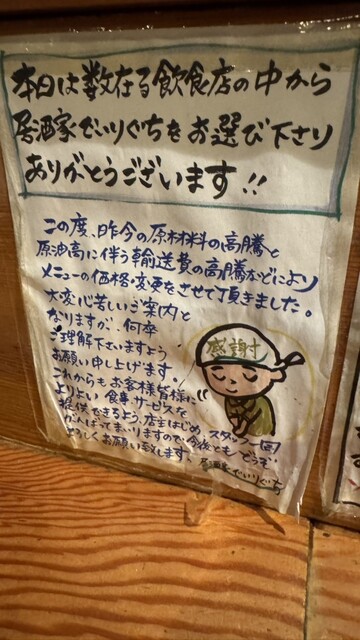 本日は数在る飲食店の中から
居酒家でいりぐちをお選び下さり
ありがとうございます!!
この度、昨今の原材料の高騰と
原油高に伴う輸送費の高騰などにより
メニューの価格変更をさせて頂きました。
大変心苦しいご案内と
なりますが、何卒
ご理解下さいますよう
お願い申し上げます。
これからもお客様皆様に
よりよい食事サービスを
提供できるよう、店主はじめ スタッフ一同
がんばってまいりますので今後とも どうぞ
よろしくお願い致します。
居酒家でいりぐち
感謝